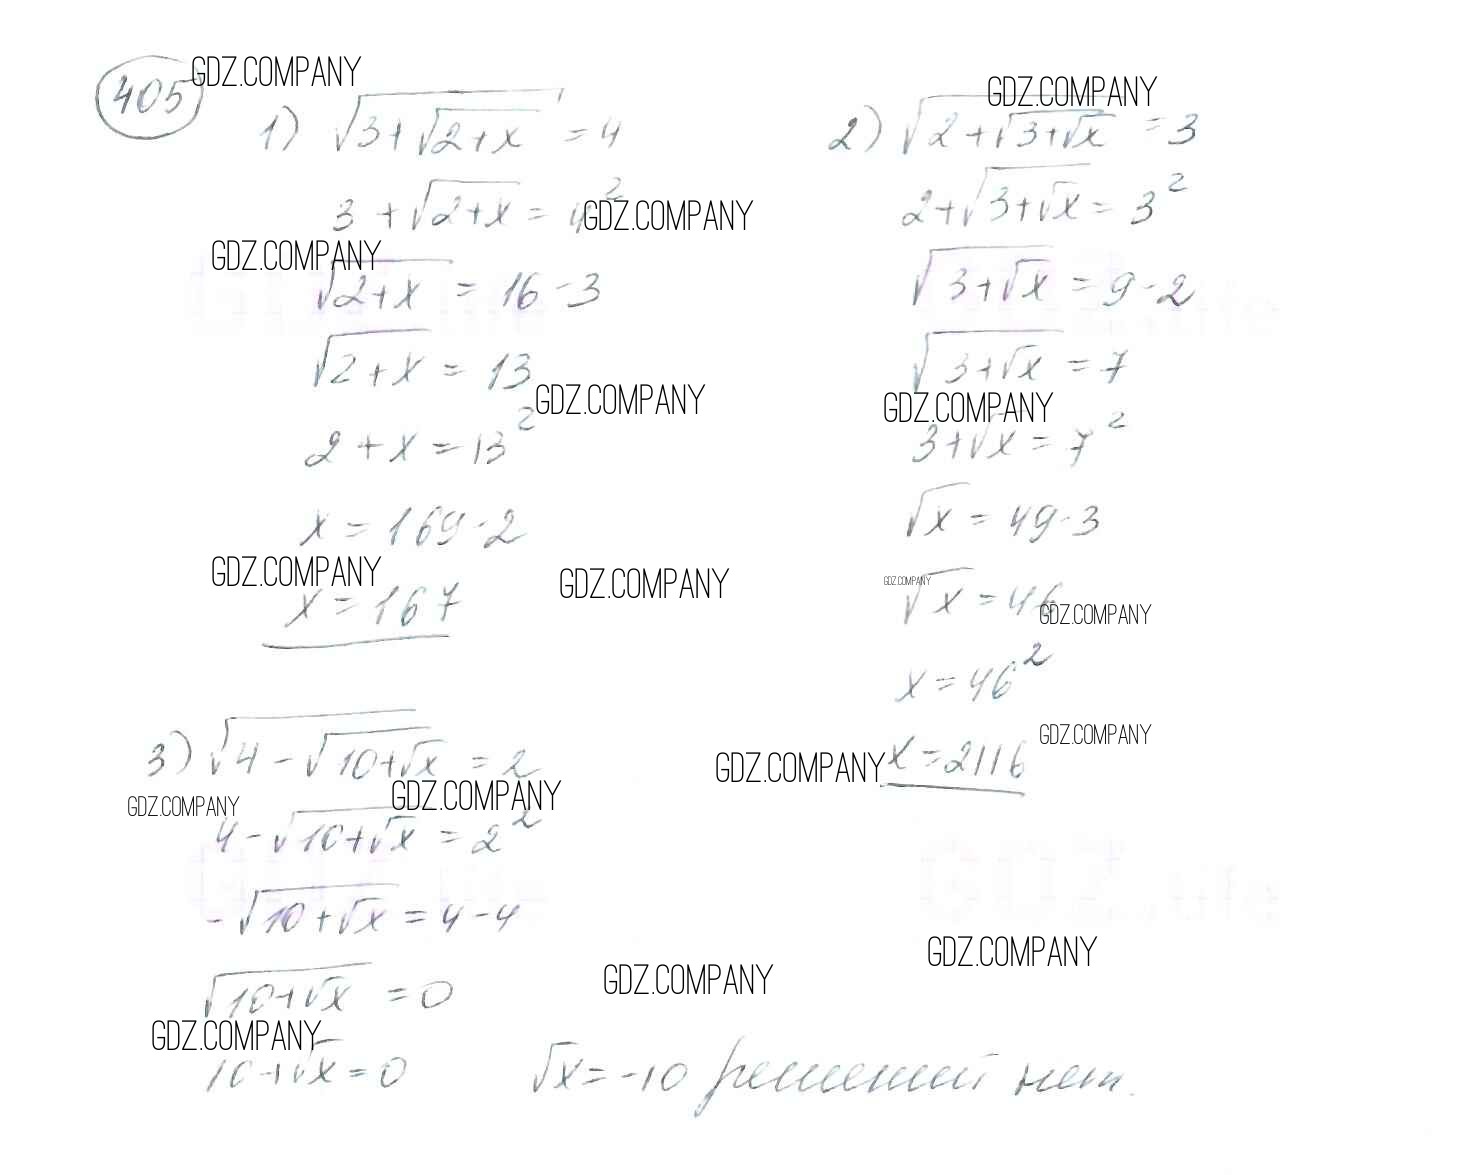 405
GDZ.COMPANY
GDZ.COMPANY
1) √(3+√(2+x)) = 4
3+√(2+x) = 4²
GDZ.COMPANY
GDZ.COMPANY
√(2+x) = 16-3
√(2+x) = 13
GDZ.COMPANY
2+x = 13²
x = 169-2
GDZ.COMPANY
GDZ.COMPANY
x = 167
2) √(2+√(3+√x)) = 3
2+√(3+√x) = 3²
√(3+√x) = 9-2
√(3+√x) = 7
GDZ.COMPANY
3+√x = 7²
√x = 49-3
GDZ.COMPANY
√x = 46
GDZ.COMPANY
x = 46²
GDZ.COMPANY
GDZ.COMPANY
x = 2116
3) √(4-√(10+√x)) = 2
GDZ.COMPANY
GDZ.COMPANY
4-√(10+√x) = 2²
-√(10+√x) = 4-4
GDZ.COMPANY
GDZ.COMPANY
√(10+√x) = 0
GDZ.COMPANY
10+√x = 0 √x = -10 решений нет.